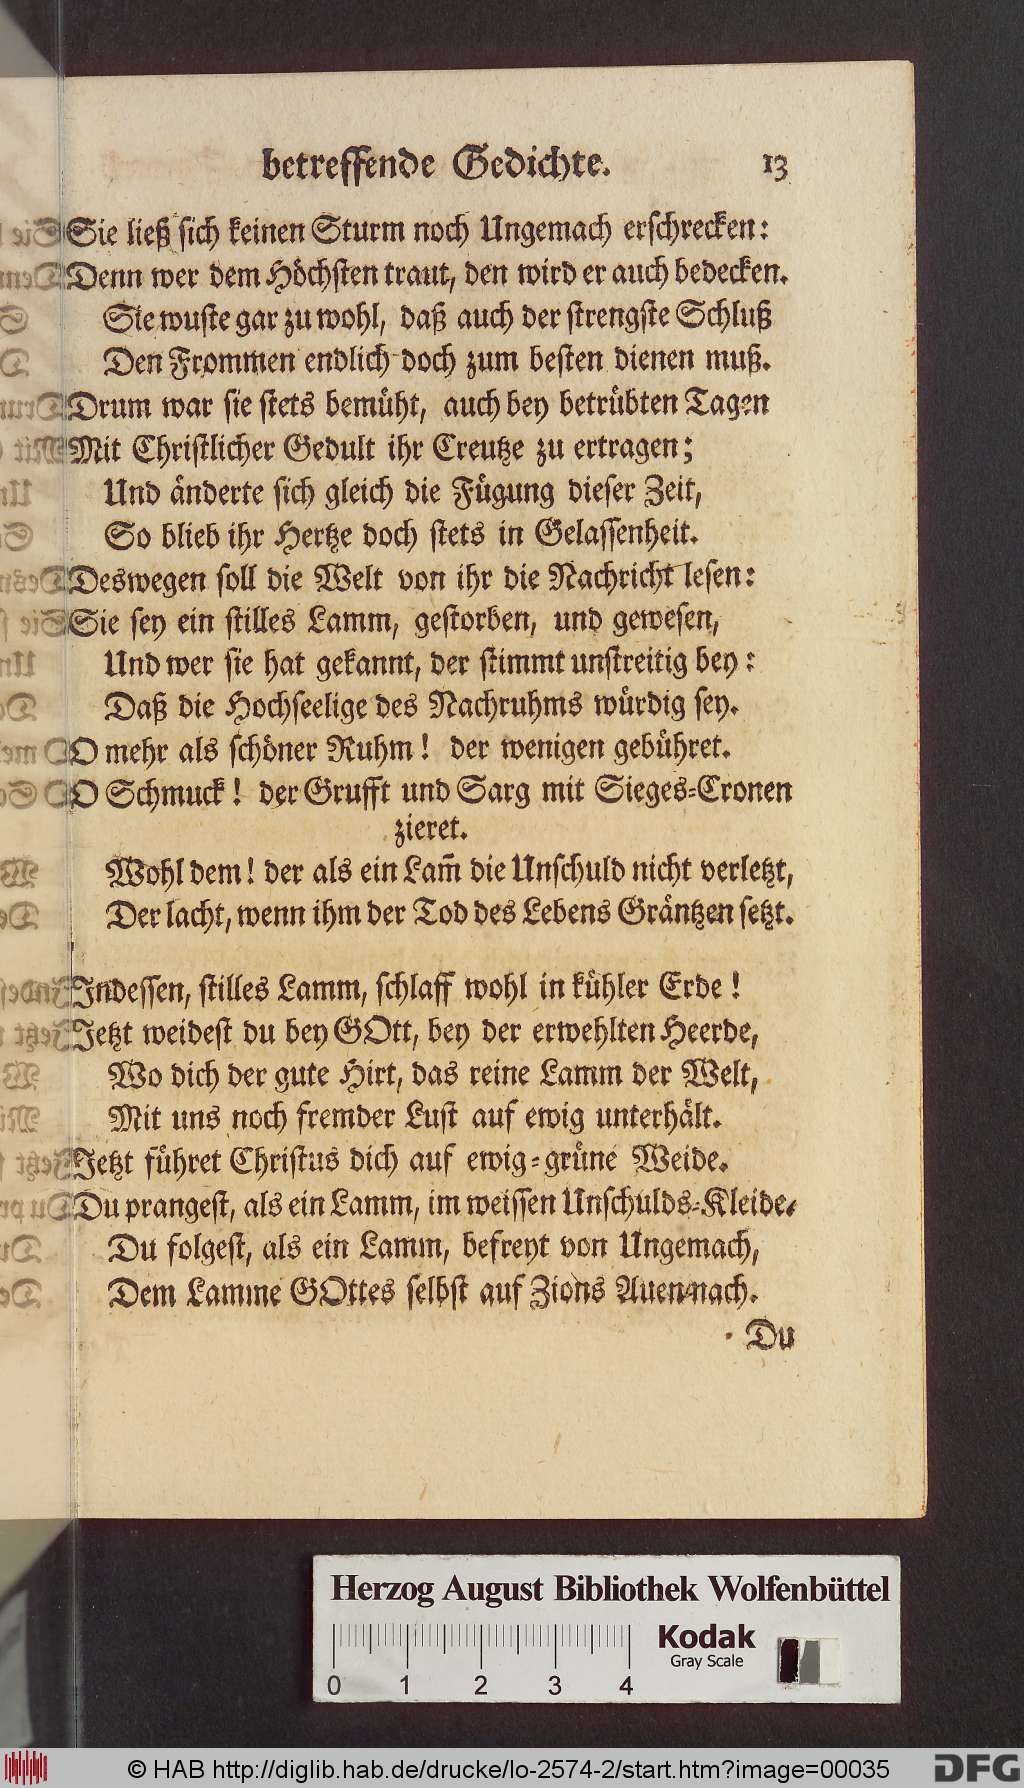 betreffende Gedichte. 13
Sie ließ sich keinen Sturm noch Ungemach erschrecken:
Denn wer dem Höchsten traut, den wird er auch bedecken.
Sie wuste gar zu wohl, daß auch der strengste Schluß
Den Frommen endlich doch zum besten dienen muß.
Drum war sie stets bemüht, auch bey betrübten Tagen
Mit Christlicher Gedult ihr Creutze zu ertragen;
Und änderte sich gleich die Fügung dieser Zeit,
So blieb ihr Hertze doch stets in Gelassenheit.
Deswegen soll die Welt von ihr die Nachricht lesen:
Sie sey ein stilles Lamm, gestorben, und gewesen,
Und wer sie hat gekannt, der stimmt unstreitig bey:
Daß die Hochseelige des Nachruhms würdig sey.
O mehr als schöner Ruhm! der wenigen gebühret.
O Schmuck! der Grufft und Sarg mit Sieges-Cronen
zieret.
Wohl dem! der als ein Lam̃ die Unschuld nicht verletzt,
Der lacht, wenn ihm der Tod des Lebens Gräntzen setzt.
Indessen, stilles Lamm, schlaff wohl in kühler Erde!
Jetzt weidest du bey GOtt, bey der erwehlten Heerde,
Wo dich der gute Hirt, das reine Lamm der Welt,
Mit uns noch fremder Lust auf ewig unterhält.
Jetzt führet Christus dich auf ewig-grüne Weide.
Du prangest, als ein Lamm, im weissen Unschulds-Kleide,
Du folgest, als ein Lamm, befreyt von Ungemach,
Dem Lamme GOttes selbst auf Zions Auen nach.
Du
Herzog August Bibliothek Wolfenbüttel
Kodak
Gray Scale
0 1 2 3 4
© HAB http://diglib.hab.de/drucke/lo-2574-2/start.htm?image=00035
DFG